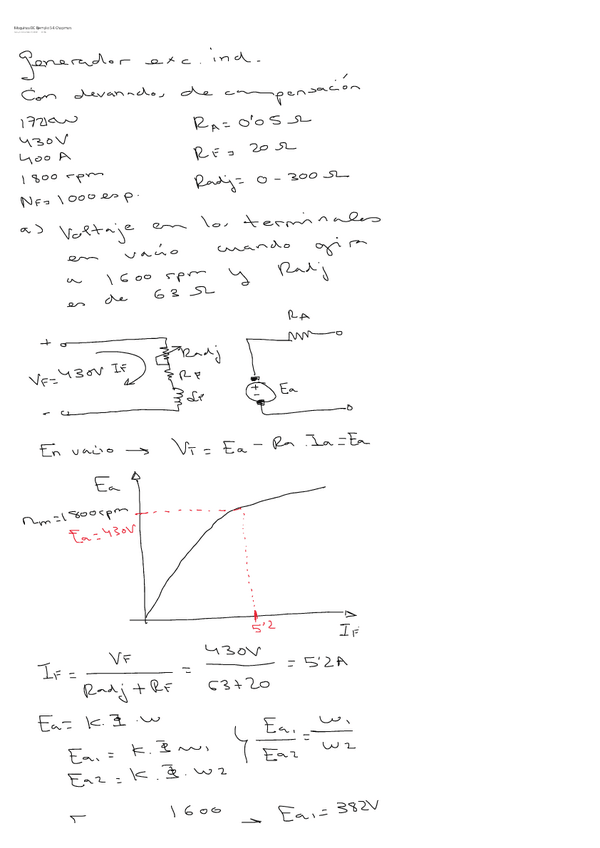 Generador exc. ind.
Con devanados de compensación
172kW
430V
400 A
1800 rpm
NF= 1000 esp.
RA = 0'05 Ω
RF = 20 Ω
Radj = 0 - 300 Ω
a) Voltaje en los terminales
en vacio cuando gira
a 1600 rpm y Radj
es de 63 Ω
RA
+
Radj
VF=430V IF
RF
LF
+
-
Ea
-
En vacio → VT = Ea - Ra . Ia = Ea
Ea
nm=1800rpm
Ea=430V
5'2
IF
IF = VF / Radj + RF = 430V / 63+20 = 5'2A
Ea = K.Φ.w
Ea1 = K.Φ.w1
Ea2 = K.Φ.w2
Ea1 / Ea2 = w1 / w2
1600 → Ea1 = 382V